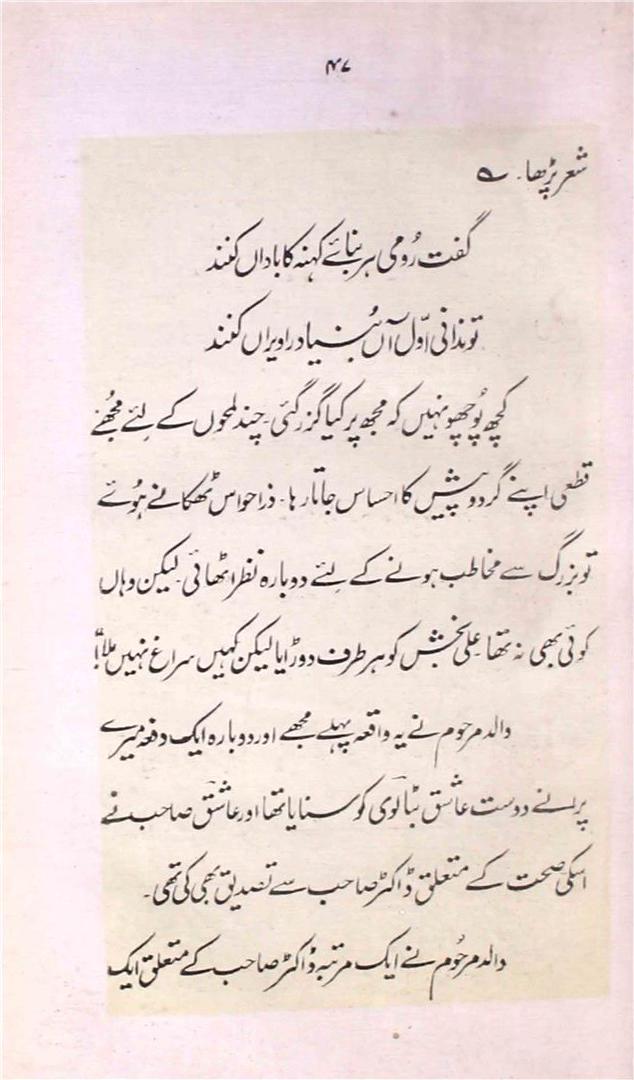 ۴۷
شعر پڑھا۔ ؎
گفت رُومی ہر بنائے کہنہ کاباداں کنند
تو ندانی اوّل آں بُنیاد را ویراں کنند
کچھ پُوچھو نہیں کہ مجھ پر کیا گزر گئی۔ چند لمحوں کے لئے مجھُے
قطعی اپنے گردوپیش کا احساس جاتا رہا۔ ذرا حواس ٹھکانے ہوُئے
تو بزرگ سے مخاطب ہونے کے لئے دوبارہ نظر اٹھائی۔ لیکن وہاں
کوئی بھی نہ تھا۔ علی بخش کو ہر طرف دوڑایا لیکن کہیں سراغ نہیں ملا"!
والد مرحوم نے یہ واقعہ پہلے مجھے اور دوبارہ ایک دفعہ میرے
پرانے دوست عاشق بٹالوی کو سنایا تھا اور عاشق صاحب نے
اسکی صحت کے متعلق ڈاکٹر صاحب سے تصدیق بھی کی تھی۔
والد مرحوُم نے ایک مرتبہ ڈاکٹر صاحب کے متعلق ایک